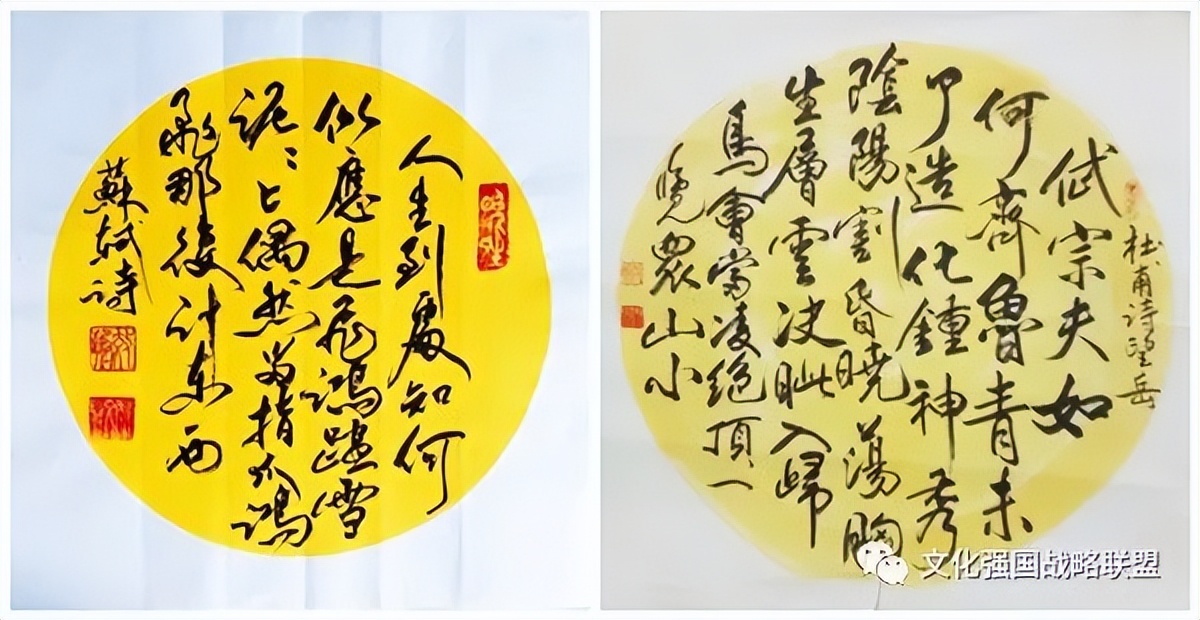 人生到處知何
似應是飛鴻踏雪
泥〻上偶然留指爪鴻
飛那復計東西
蘇軾诗
杜甫诗望岳
岱宗夫如
何齊魯青未
了造化鍾神秀
陰陽割昏曉蕩胸
生層雲决眦入歸
鳥會當凌絶頂一
覽衆山小
文化强国战略联盟